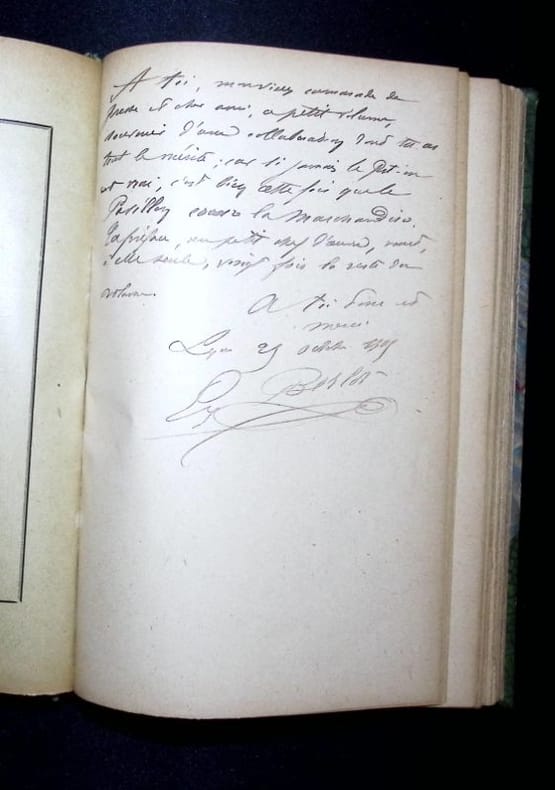 A toi, mon vieux camarade de
presse et cher ami, ce petit volume,
souvenir d'une collaboration dont tu as
tout le mérite ; car si jamais le
est vrai, c'est bien cette fois que le
Pavillon couvre la Marchandise.
Ta préface, un petit chef d'œuvre, vaut,
à elle seule, vingt fois le reste du
volume.
A toi donc et
merci
Lyon 29 octobre